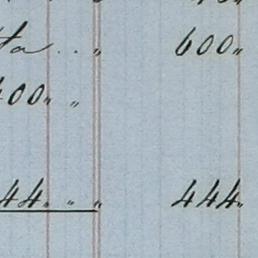 ta . . " 600 "
400 " "
44 " " " 444 "